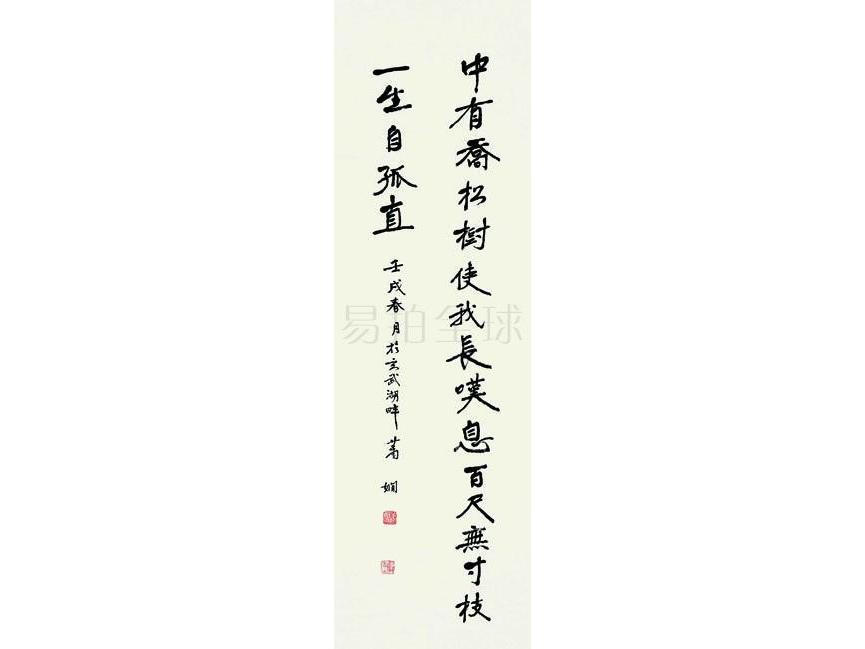 中有喬松樹使我長嘆息百尺無寸枝
一生自孤直
壬戌春月於玄武湖畔 蕭嫻
易拍全球